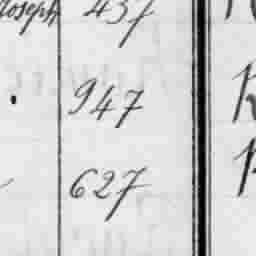 Joseph 437
947
627